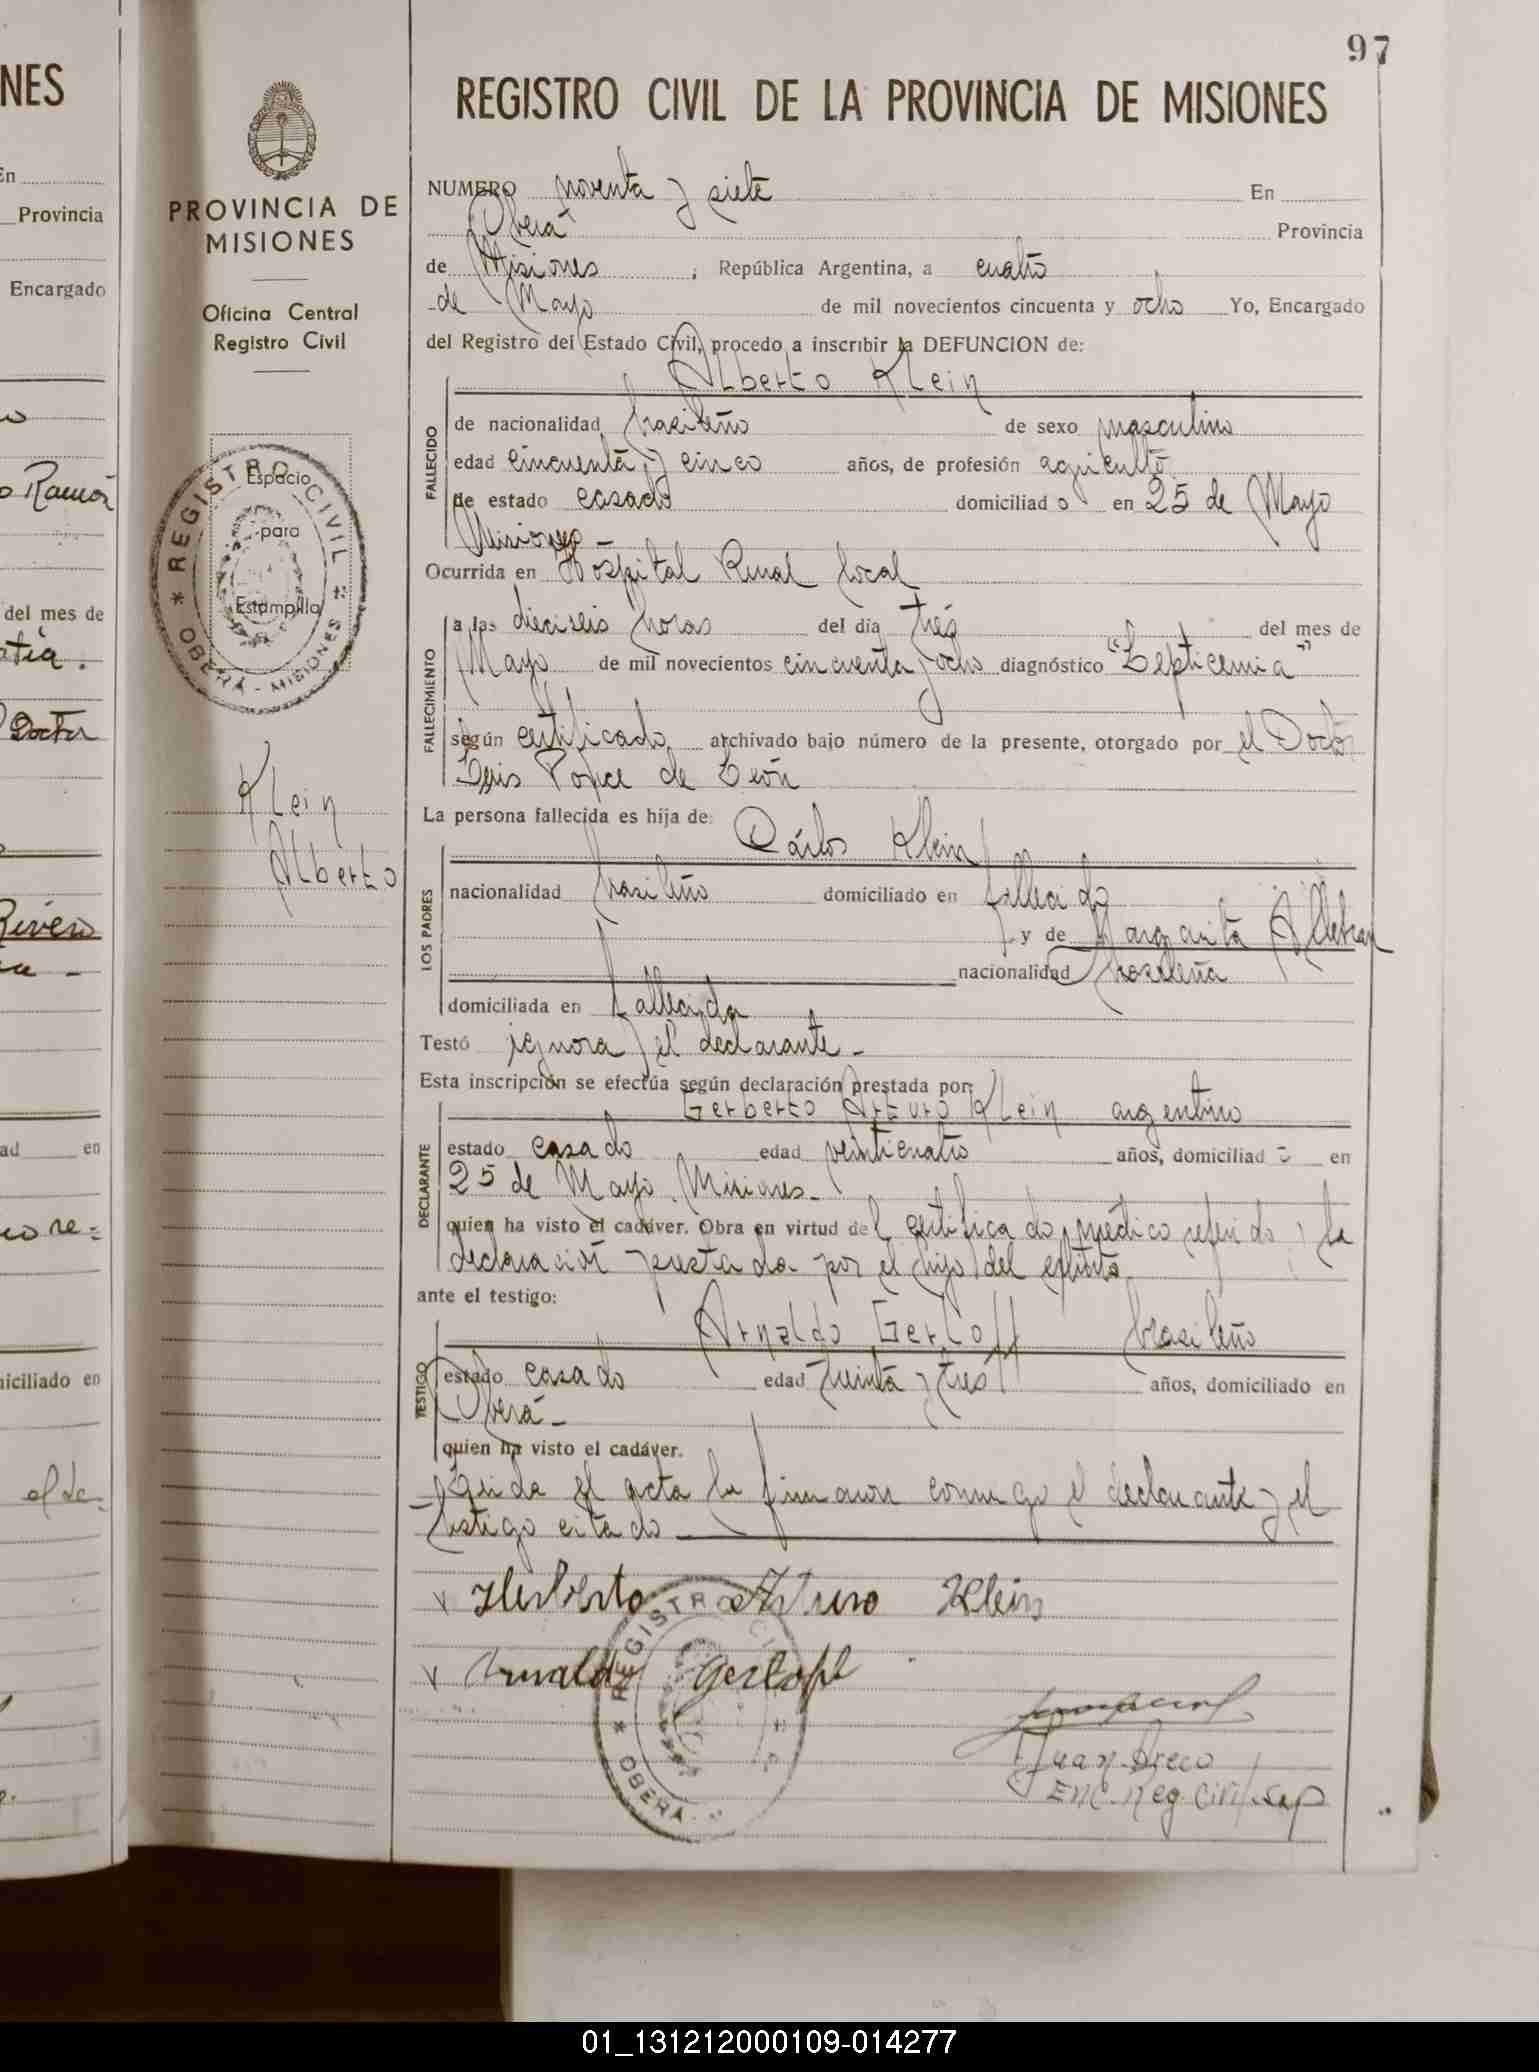 97
NES
REGISTRO CIVIL DE LA PROVINCIA DE MISIONES
En
Provincia
Encargado
Ramón
del mes de
Doctor
Rivero
ad en
niciliado en
PROVINCIA DE
MISIONES
Oficina Central
Registro Civil
Espacio
para
Estampilla
* REGISTRO CIVIL *
OBERÁ - MISIONES
Klein
Alberto
NUMERO noventa y siete En
Oberá Provincia
de Misiones, República Argentina, a cuatro
de Mayo de mil novecientos cincuenta y ocho Yo, Encargado
del Registro del Estado Civil, procedo a inscribir la DEFUNCION de:
Alberto Klein
FALLECIDO
de nacionalidad brasileño de sexo masculino
edad cincuenta y cinco años, de profesión agricultor
de estado casado domiciliado en 25 de Mayo
Misiones -
Ocurrida en Hospital Rural local
FALLECIMIENTO
a las dieciseis horas del día tres del mes de
Mayo de mil novecientos cincuenta y ocho diagnóstico "Septicemia"
según certificado archivado bajo número de la presente, otorgado por el Doctor
Luis Ponce de León
La persona fallecida es hija de:
Cárlos Klein
LOS PADRES
nacionalidad brasileño domiciliado en fallecido
y de Margarita
nacionalidad brasileña
domiciliada en fallecida
Testó ignora el declarante -
Esta inscripción se efectúa según declaración prestada por:
Gerberto Arturo Klein argentino
DECLARANTE
estado casado edad veinticuatro años, domiciliado en
25 de Mayo, Misiones -
quien ha visto el cadáver. Obra en virtud del certificado médico referido y la
declaración prestada por el hijo del extinto
ante el testigo:
Arnaldo Gerloff brasileño
TESTIGO
estado casado edad treinta y tres años, domiciliado en
Oberá -
quien ha visto el cadáver.
Leída el acta la firmaron conmigo el declarante y el
testigo citado
x Herberto Arturo Klein
x Arnaldo Gerloff
* REGISTRO CI
OBERÁ
Juan Greco
Enc. Reg. Civil. Sup
01_131212000109-014277